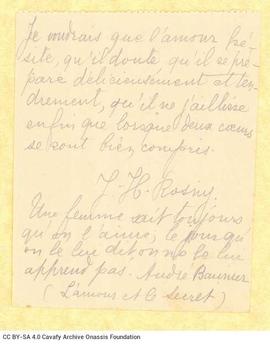 Je voudrais que l'amour hé-
site, qu'il doute, qu'il se pré-
pare délicieusement et ten-
drement, qu'il ne jaillisse
enfin que lorsque deux cœurs
se sont bien compris.
J.-H. Rosny
Une femme sait toujours
qu'on l'aime; le jour où
on le lui dit, on ne le lui
apprend pas. André Beaunier
(L'amour et le secret)
CC BY-SA 4.0 Cavafy Archive Onassis Foundation